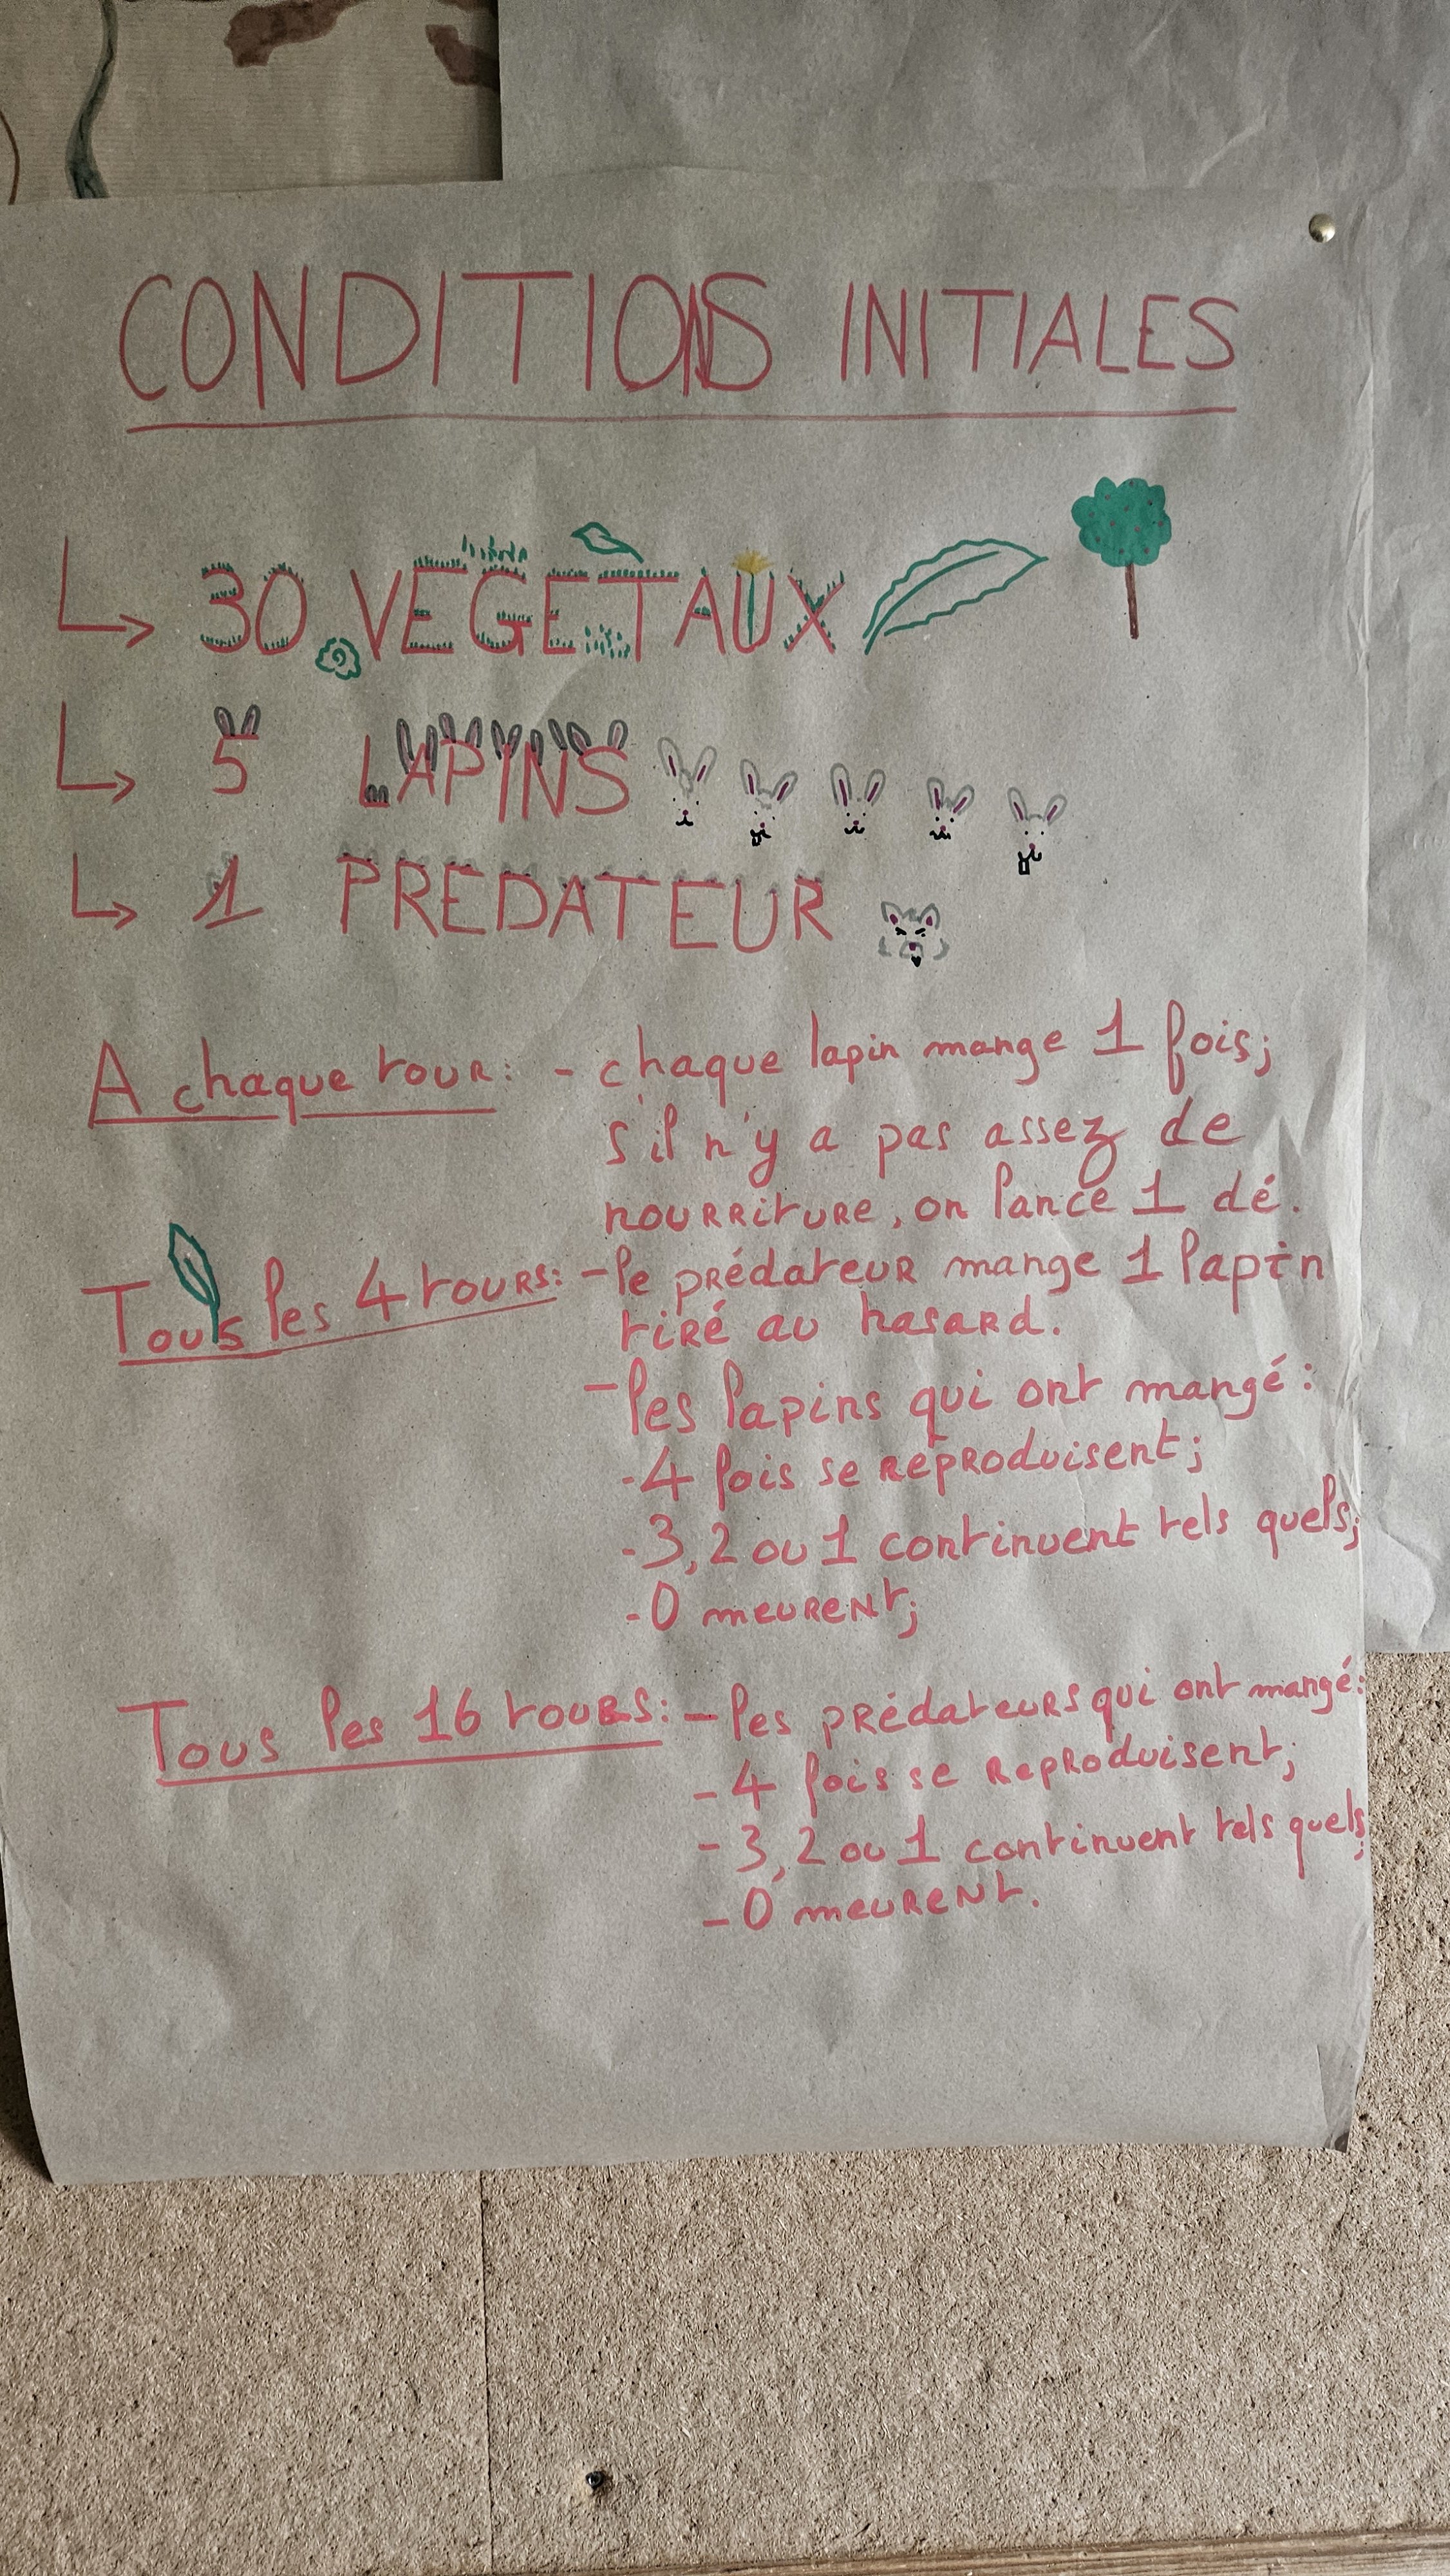 CONDITIONS INITIALES
30 VEGETAUX
5 LAPINS
1 PREDATEUR
A chaque tour: - chaque lapin mange 1 fois;
s'il n'y a pas assez de
nourriture, on lance 1 dé.
Tous les 4 tours: - le prédateur mange 1 lapin
tiré au hasard.
- les lapins qui ont mangé:
- 4 fois se reproduisent;
- 3, 2 ou 1 continuent tels quels;
- 0 meurent;
Tous les 16 tours: - les prédateurs qui ont mangé:
- 4 fois se reproduisent;
- 3, 2 ou 1 continuent tels quels;
- 0 meurent.